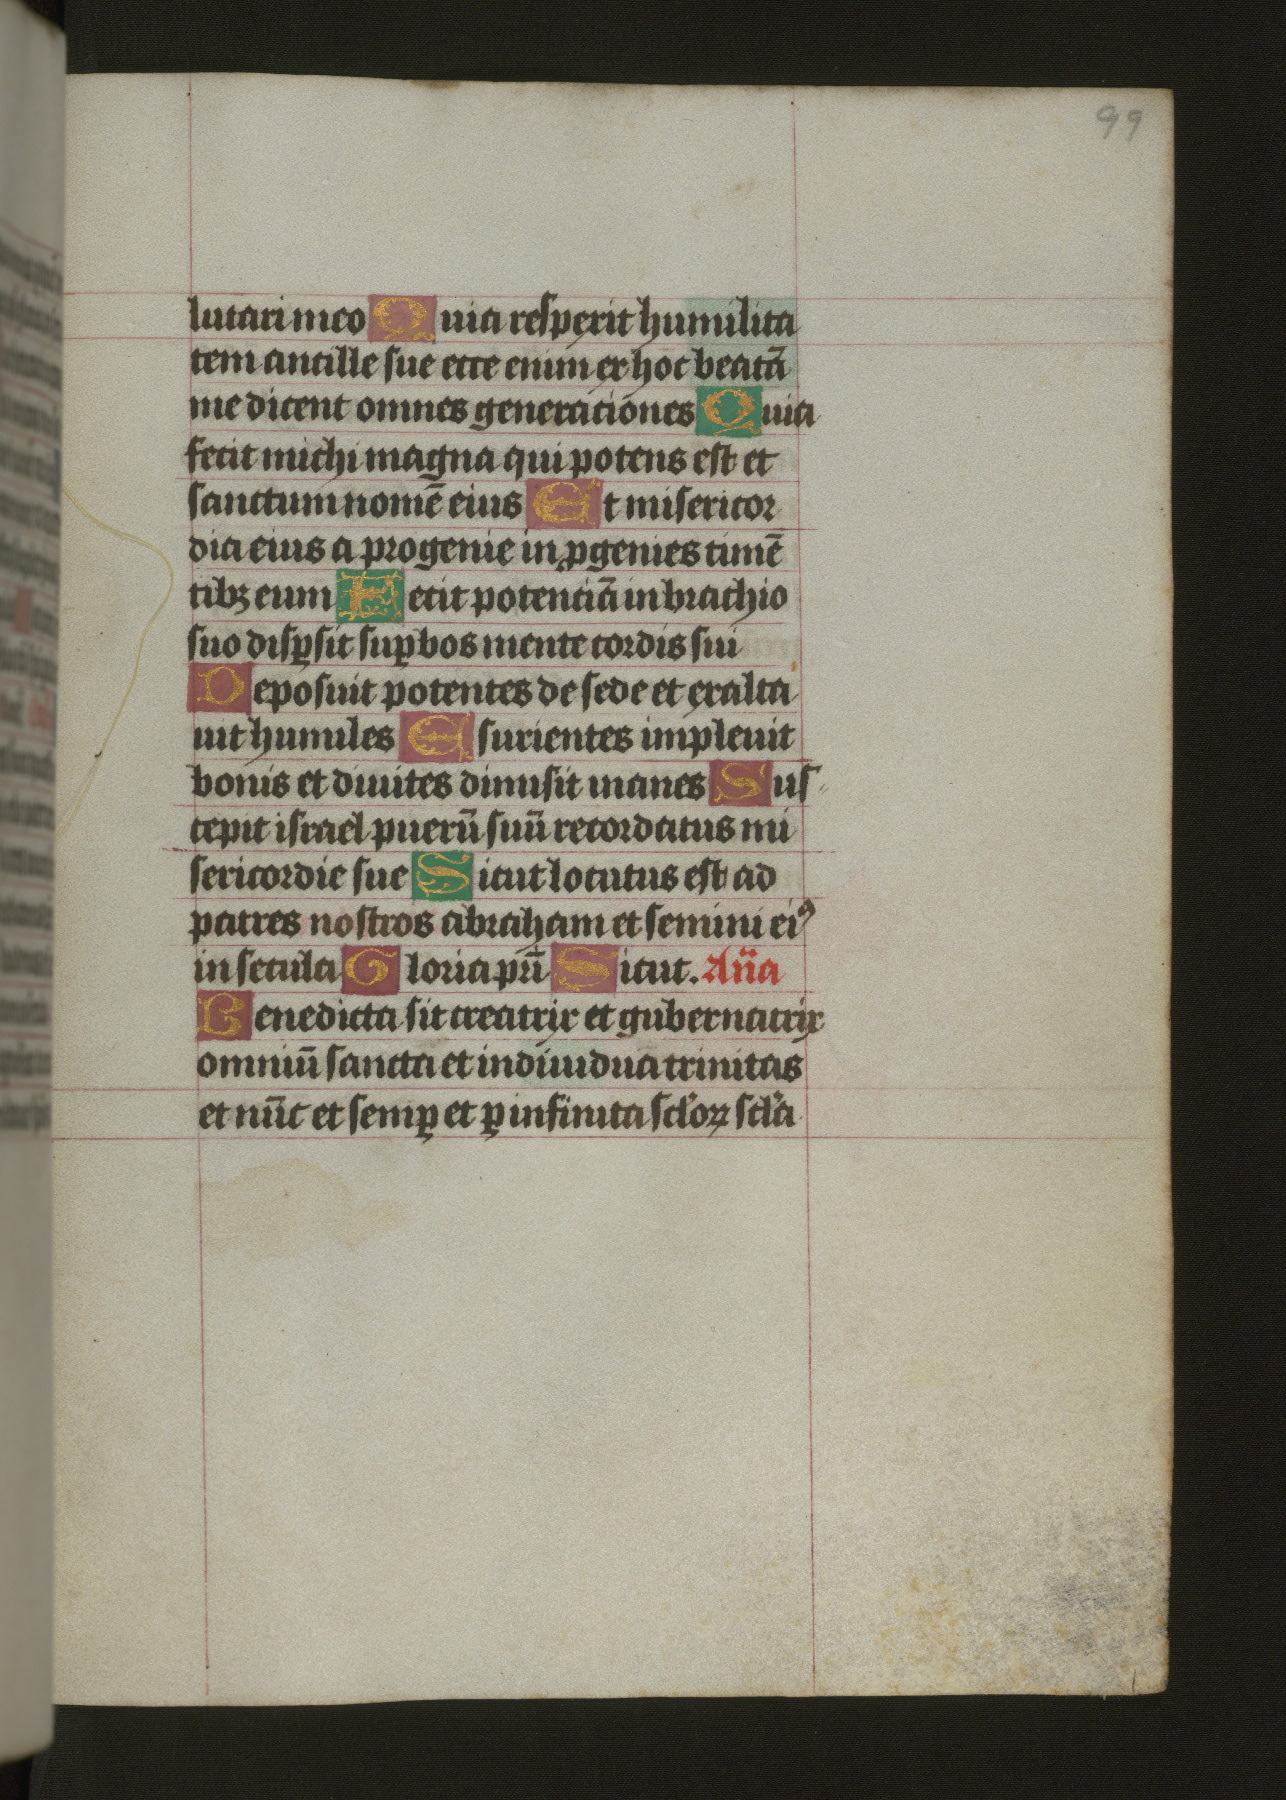 99
lutari meo Quia respexit humilita
tem ancille sue ecce enim ex hoc beatā
me dicent omnes generaciones Quia
fecit michi magna qui potens est et
sanctum nomē eius Et misericor
dia eius a progenie in ꝓgenies timē
tibꝫ eum Fecit potenciā in brachio
suo disꝑsit suꝑbos mente cordis sui
Deposuit potentes de sede et exalta
uit humiles Esurientes impleuit
bonis et diuites dimisit inanes Sus
cepit israel puerū suū recordatus mi
sericordie sue Sicut locutus est ad
patres nostros abraham et semini eiꝰ
in secula Gloria pr̄i Sicut. An̄a
Benedicta sit creatrix et gubernatrix
omniū sancta et indiuidua trinitas
et nūc et semꝑ et ꝑ infinita scl̓oꝝ scl̓a